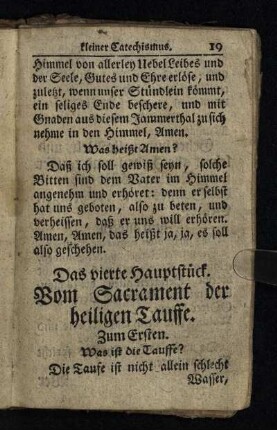 kleiner Catechismus. 19
Himmel von allerley Uebel Leibes und
der Seele, Gutes und Ehre erlöse, und
zuletzt, wenn unser Stündlein kömmt,
ein seliges Ende beschere, und mit
Gnaden aus diesem Jammerthal zu sich
nehme in den Himmel, Amen.
Was heißt Amen?
Daß ich soll gewiß seyn, solche
Bitten sind dem Vater im Himmel
angenehm und erhöret: denn er selbst
hat uns geboten, also zu beten, und
verheissen, daß er uns will erhören.
Amen, Amen, das heißt ja, ja, es soll
also geschehen.
Das vierte Hauptstück.
Vom Sacrament der
heiligen Tauffe.
Zum Ersten.
Was ist die Tauffe?
Die Taufe ist nicht allein schlecht
Wasser,